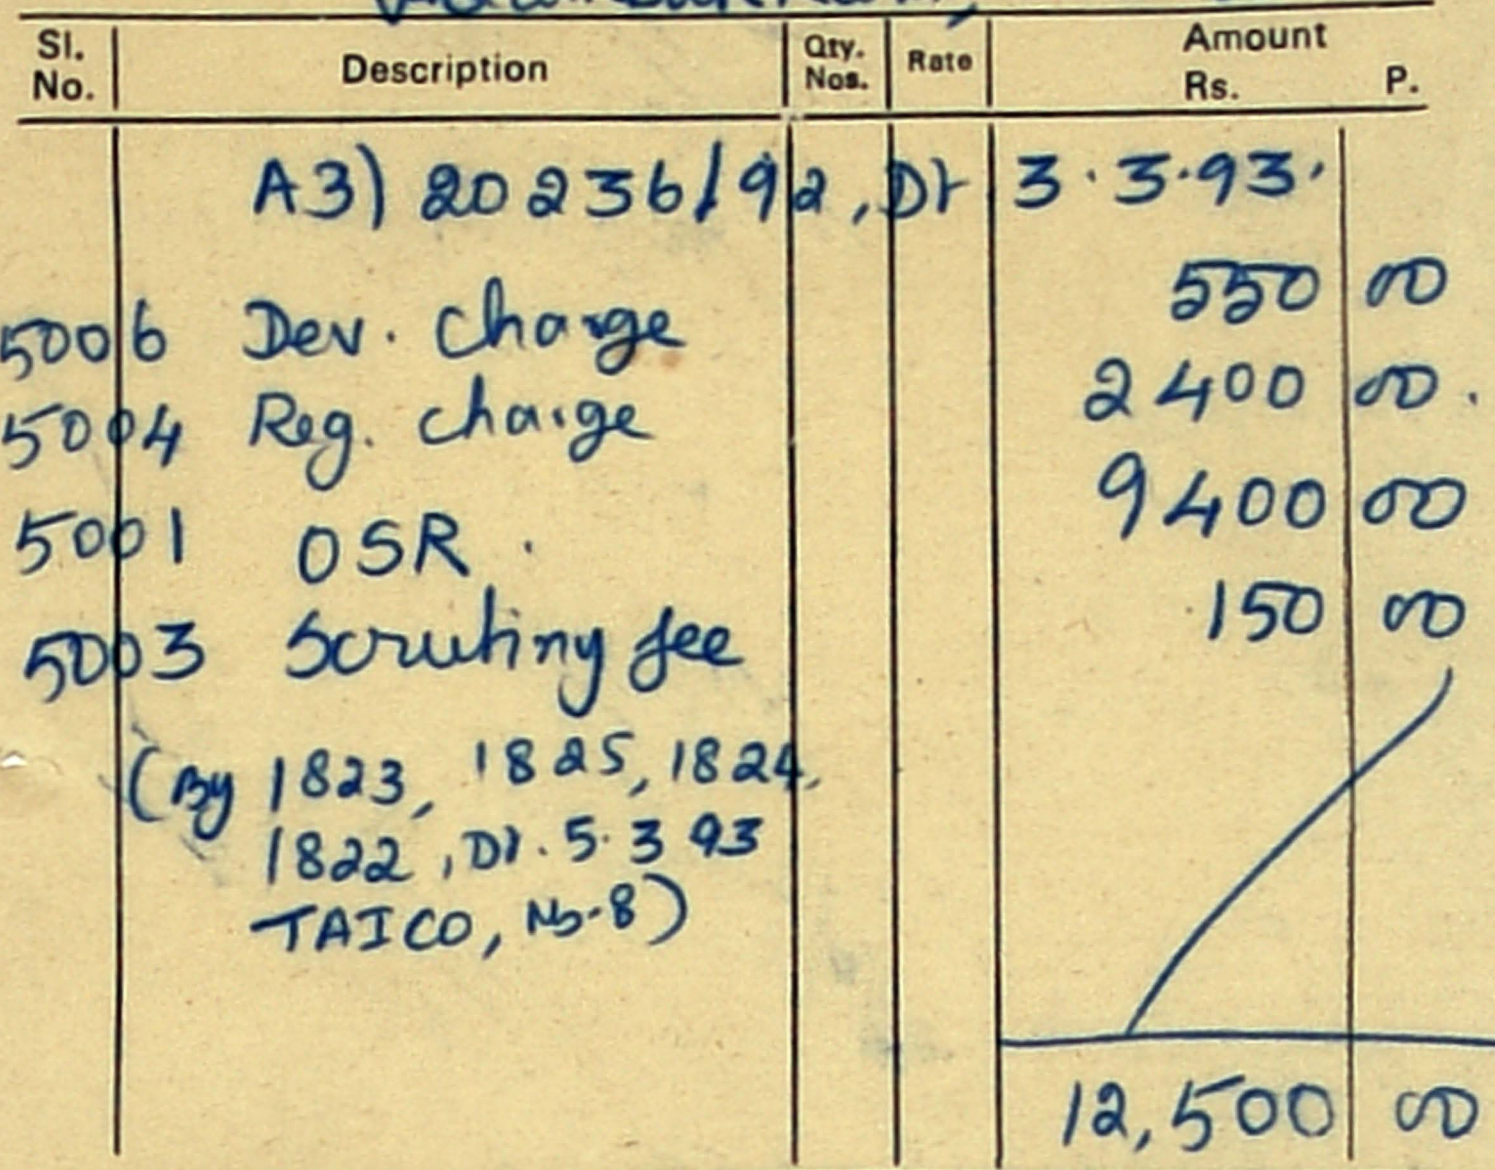 Sl. No. Description Qty. Nos. Rate Amount Rs. P.
A3) 20236/92, Dt 3.3.93.
5006 Dev. charge 550 00
5004 Reg. charge 2400 00.
5001 OSR. 9400 00
5003 Scrutiny fee 150 00
(By 1823, 1825, 1824,
1822, Dt. 5.3 93
TAICO, Ms-8)
12,500 00